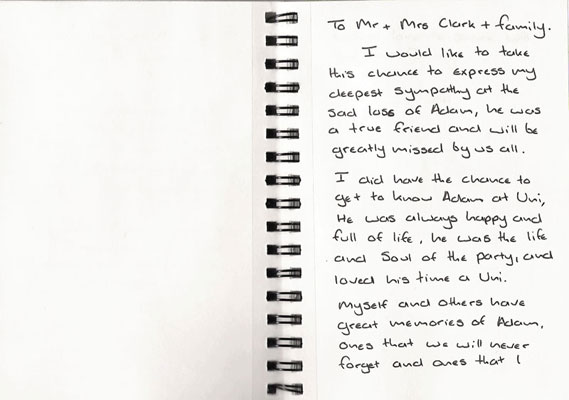 To Mr + Mrs Clark + family.
I would like to take
this chance to express my
deepest sympathy at the
sad loss of Adam, he was
a true friend and will be
greatly missed by us all.
I did have the chance to
get to know Adam at Uni,
He was always happy and
full of life, he was the life
and Soul of the party, and
loved his time a Uni.
Myself and others have
great memories of Adam,
ones that we will never
forget and ones that I